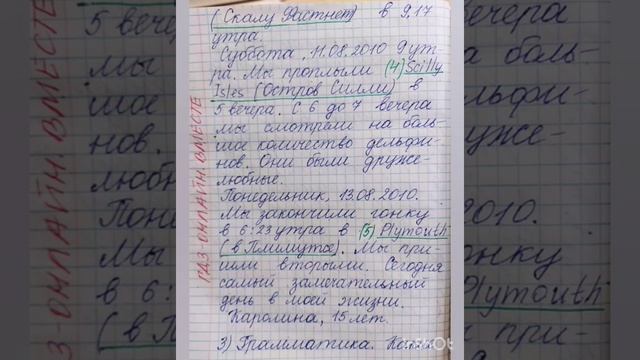 (Скалу Фастнет) в 9.17
утра.
Суббота, 11.08.2010 9 ут-
ра. Мы проплыли (4) Scilly
Isles (Остров Силли) в
5 вечера. С 6 до 7 вечера
мы смотрели на боль-
шое количество дельфи-
нов. Они были друже-
любные.
Понедельник, 13.08.2010.
Мы закончили гонку
в 6:23 утра в (5) Plymouth
(в Плимутье). Мы при-
шли вторыми. Сегодня
самый замечательный
день в моей жизни.
Каролина, 15 лет.
3) Грамматика.
ГДЗ-ОНЛАЙН. ВМЕСТЕ